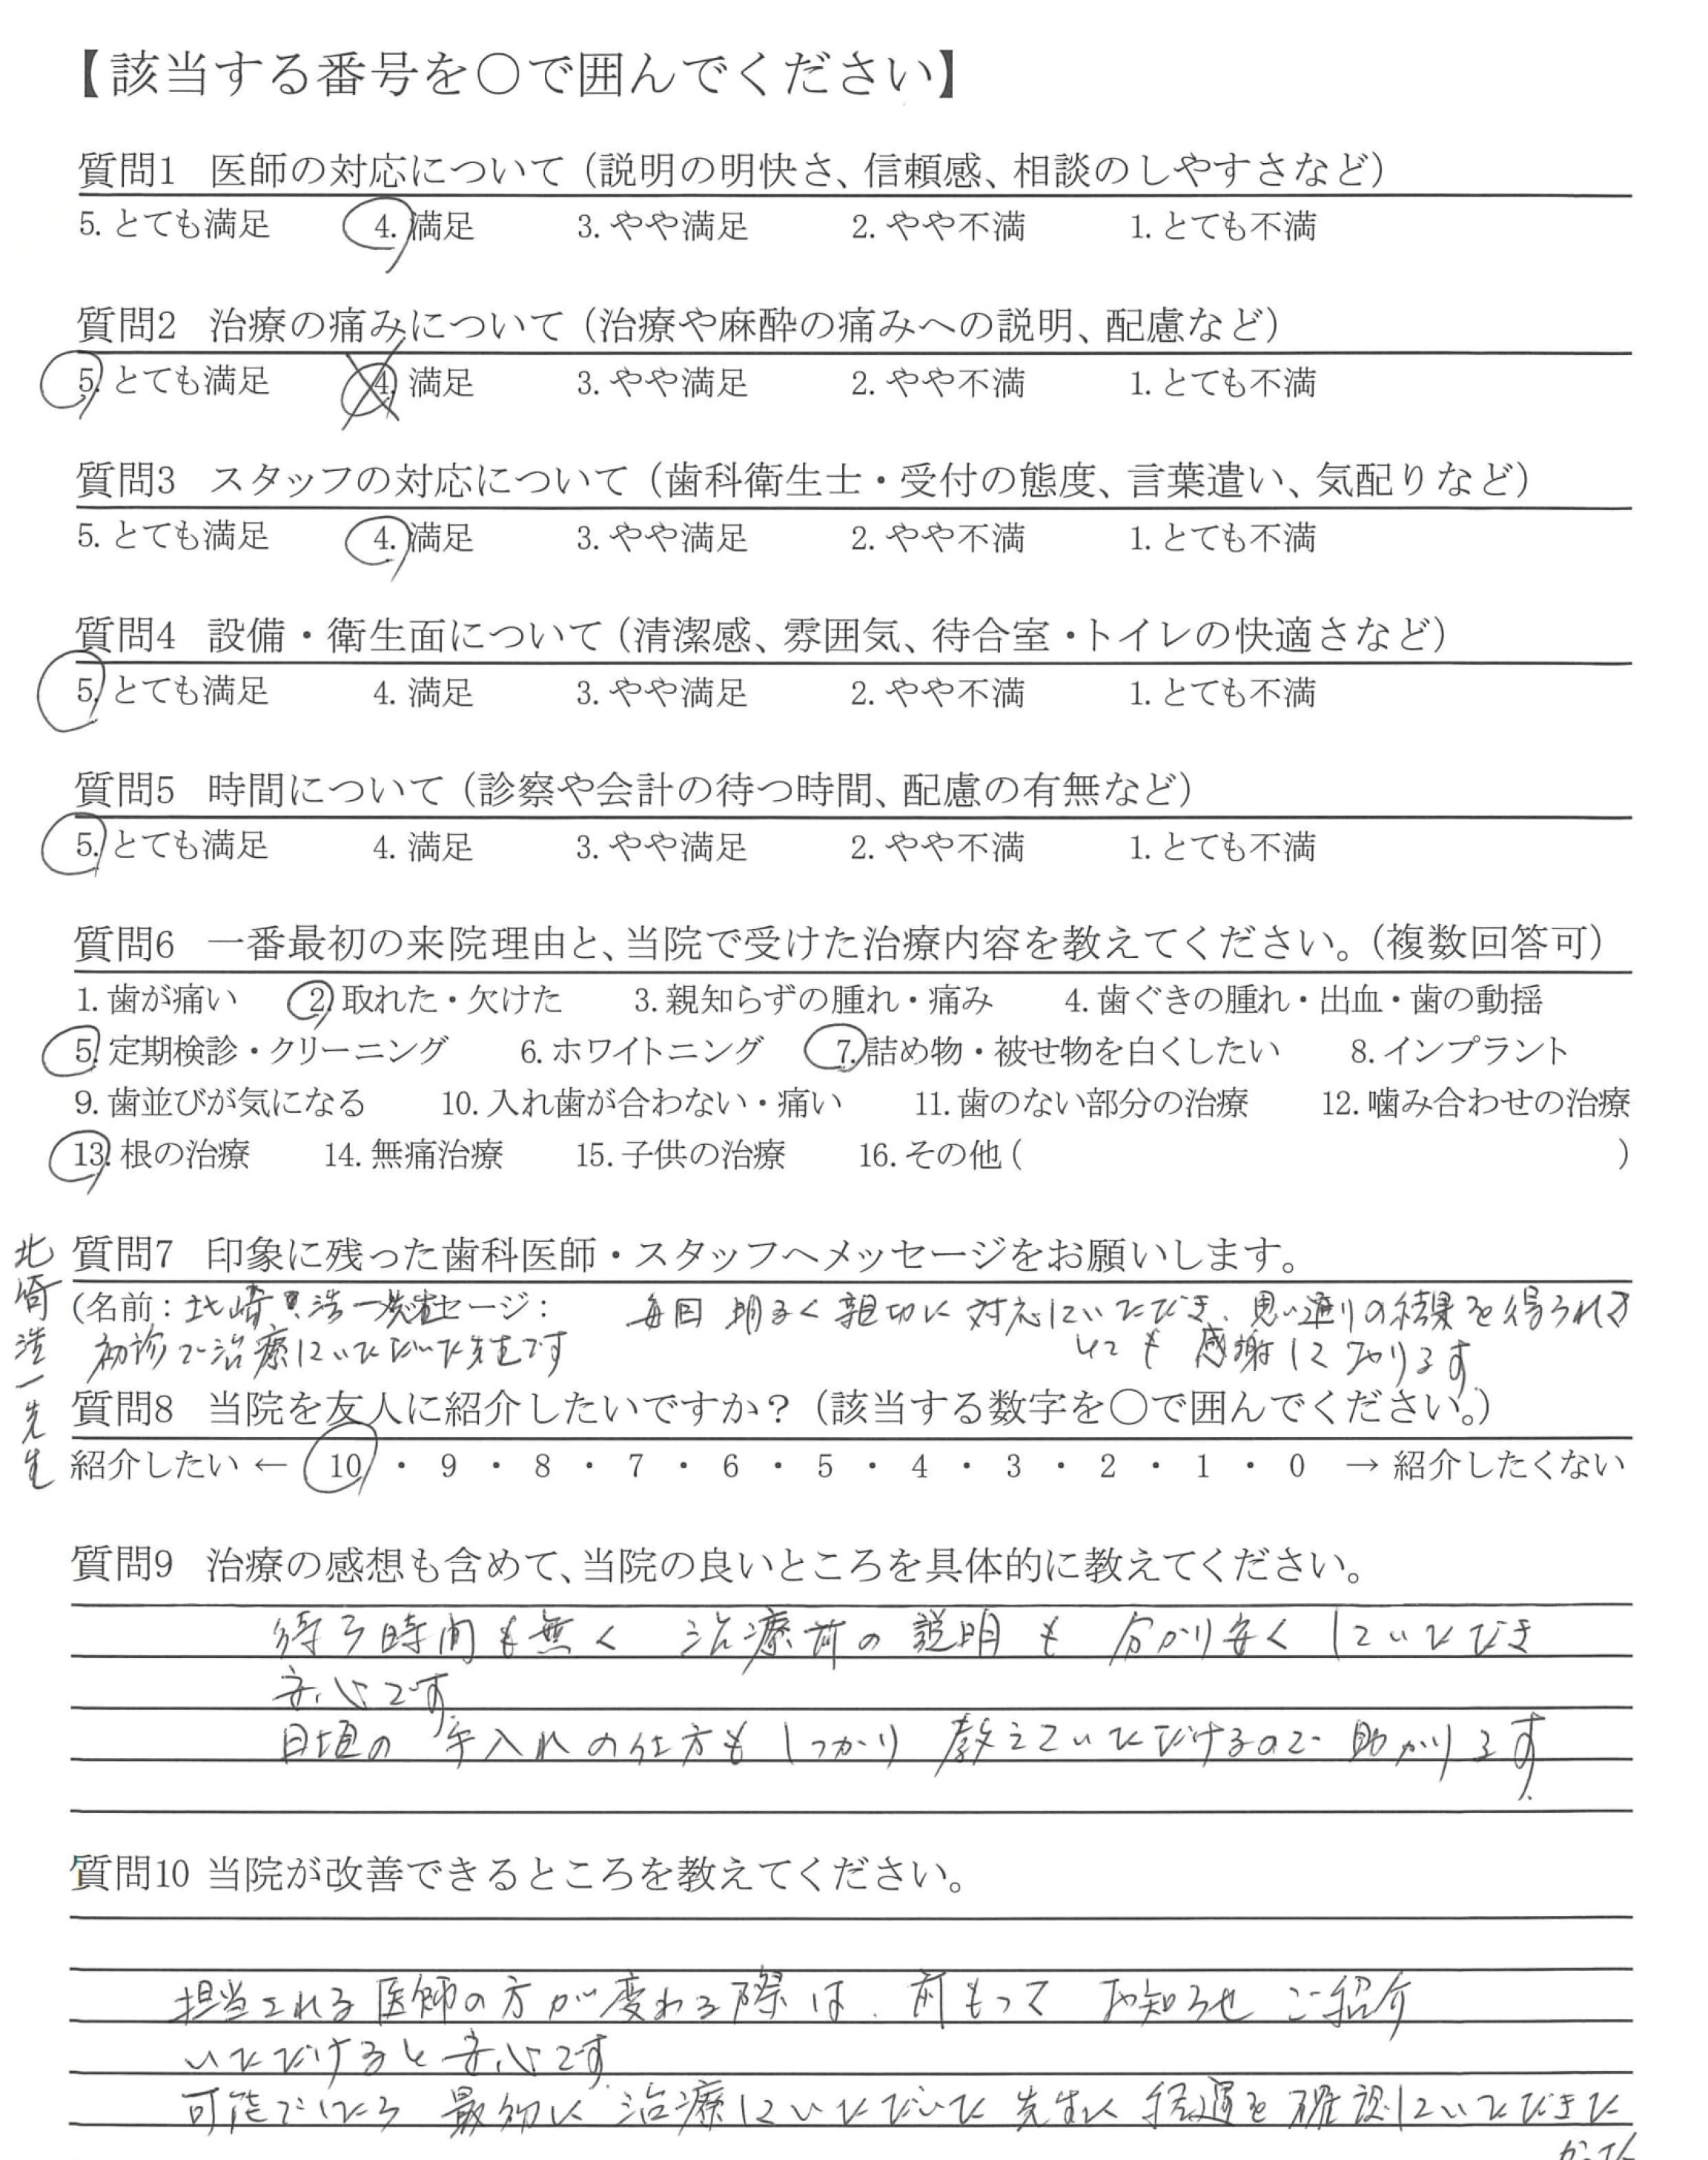 【該当する番号を○で囲んでください】
質問1 医師の対応について（説明の明快さ、信頼感、相談のしやすさなど）
5. とても満足 4. 満足 3. やや満足 2. やや不満 1. とても不満
質問2 治療の痛みについて（治療や麻酔の痛みへの説明、配慮など）
5. とても満足 4. 満足 3. やや満足 2. やや不満 1. とても不満
質問3 スタッフの対応について（歯科衛生士・受付の態度、言葉遣い、気配りなど）
5. とても満足 4. 満足 3. やや満足 2. やや不満 1. とても不満
質問4 設備・衛生面について（清潔感、雰囲気、待合室・トイレの快適さなど）
5. とても満足 4. 満足 3. やや満足 2. やや不満 1. とても不満
質問5 時間について（診察や会計の待つ時間、配慮の有無など）
5. とても満足 4. 満足 3. やや満足 2. やや不満 1. とても不満
質問6 一番最初の来院理由と、当院で受けた治療内容を教えてください。（複数回答可）
1. 歯が痛い 2. 取れた・欠けた 3. 親知らずの腫れ・痛み 4. 歯ぐきの腫れ・出血・歯の動揺
5. 定期検診・クリーニング 6. ホワイトニング 7. 詰め物・被せ物を白くしたい 8. インプラント
9. 歯並びが気になる 10. 入れ歯が合わない・痛い 11. 歯のない部分の治療 12. 噛み合わせの治療
13. 根の治療 14. 無痛治療 15. 子供の治療 16. その他 ( )
北崎浩一先生
質問7 印象に残った歯科医師・スタッフへメッセージをお願いします。
(名前: 北崎 浩一先生セージ: 毎回 明るく親切に対応していただき、思い通りの結果を得られまして
初診で治療していただいた先生です とても 感謝しております
質問8 当院を友人に紹介したいですか？（該当する数字を○で囲んでください。）
紹介したい ← 10 ・ 9 ・ 8 ・ 7 ・ 6 ・ 5 ・ 4 ・ 3 ・ 2 ・ 1 ・ 0 → 紹介したくない
質問9 治療の感想も含めて、当院の良いところを具体的に教えてください。
待う時間も無く 治療前の説明も 分かり安くしていただき
安心です
日頃の 手入れの仕方もしっかり 教えていただけるので 助かります
質問10 当院が改善できるところを教えてください。
担当される医師の方が変わる際は、前もって お知らせ ご紹介
いただけると安心です
可能でしたら 最初に 治療していただいた 先生に 経過を確認していただきた
かった